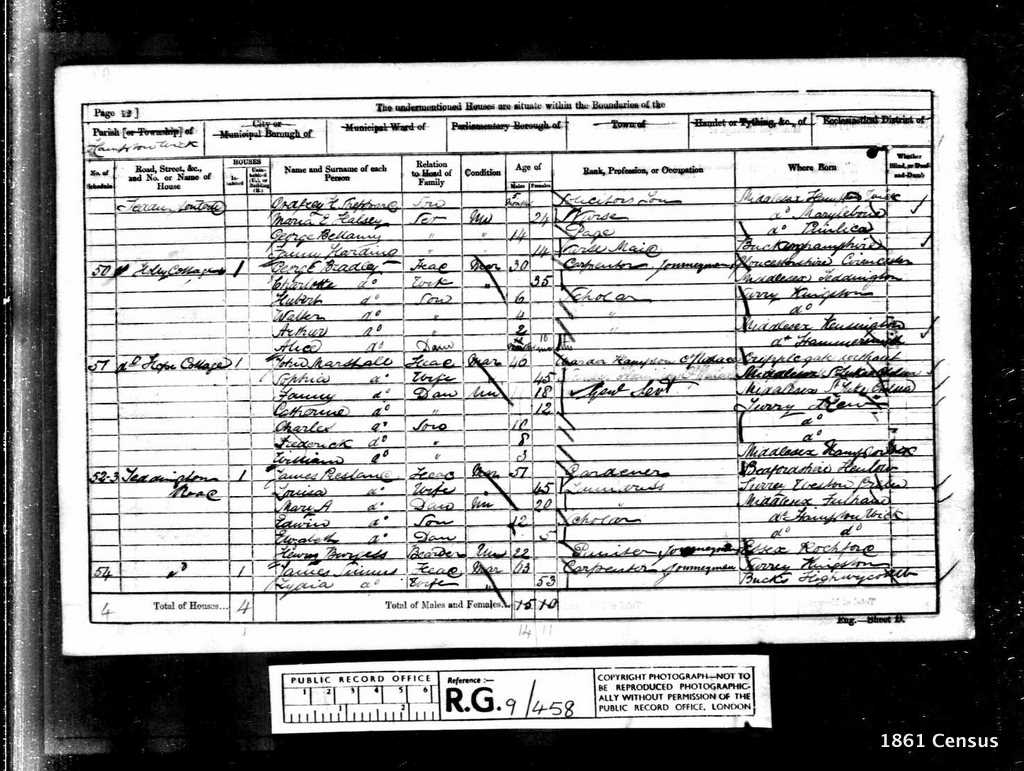 The undermentioned Houses are situate within the Boundaries of the
Page ]
Parish [or Township] of
City or Municipal Borough of
Municipal Ward of
Parliamentary Borough of
Town of
Hamlet or Tything, &c., of
Ecclesiastical District of
Hampton Wick
No. of Schedule
Road, Street, &c., and No. or Name of House
HOUSES
Inhabited
Uninhabited (U.), or Building (B.)
Name and Surname of each Person
Relation to Head of Family
Condition
Age of
Males
Females
Rank, Profession, or Occupation
Where Born
Whether Blind, or Deaf-and-Dumb
Son Solicitors Son Middlesex Hampton Wick
Maria E. Halsey Un 24 Nurse do Marylebone
George Bellamy " " 14 Page do Pimlico
Fanny Harding " " 14 Buckinghamshire
50 Holly Cottage 1 Bradley Head Mar 30 Carpenter Journeyman Gloucestershire Cirencester
Charlotte do Wife " 35 Middlesex Teddington
Hubert do Son 6 Scholar Surry Kingston
Walter do " 4 " do
Arthur do " 2 Middlesex Kensington
Alice do Daur do Hammersmith
51 do Hope Cottage 1 John Marshall Head Mar 40 Cripplegate without
Sophia do Wife 45 Middlesex St Lukes
Fanny do Daur Un 18 Genl Servt Middlesex St Lukes
Catherine do " 12 Surry Kew
Charles do Son 10 do
Frederick do " 8 do
William do " 3 Middlesex Hampton Wick
52-3 Teddington Road 1 James Head Mar 57 Gardener Bedfordshire Henlow
Louisa do Wife 45 Laundress Surrey Weston
Mary A do Daur Un 20 " Middlesex Fulham
Edwin do Son 12 Scholar do Hampton Wick
Elizabeth do Daur 5 do do
Henry Burgess Boarder Un 22 Journeyman Essex Rochford
54 do 1 James Head Mar 43 Carpenter Journeyman Surrey Kingston
Lydia do Wife " 53 Bucks Highwycomb
4 Total of Houses... 4 Total of Males and Females... 15 10
14 11
Eng.—Sheet D.
PUBLIC RECORD OFFICE
1 2 3 4 5 6
1 2
Reference :—
R.G. 9/458
COPYRIGHT PHOTOGRAPH—NOT TO
BE REPRODUCED PHOTOGRAPHIC-
ALLY WITHOUT PERMISSION OF THE
PUBLIC RECORD OFFICE, LONDON
1861 Census